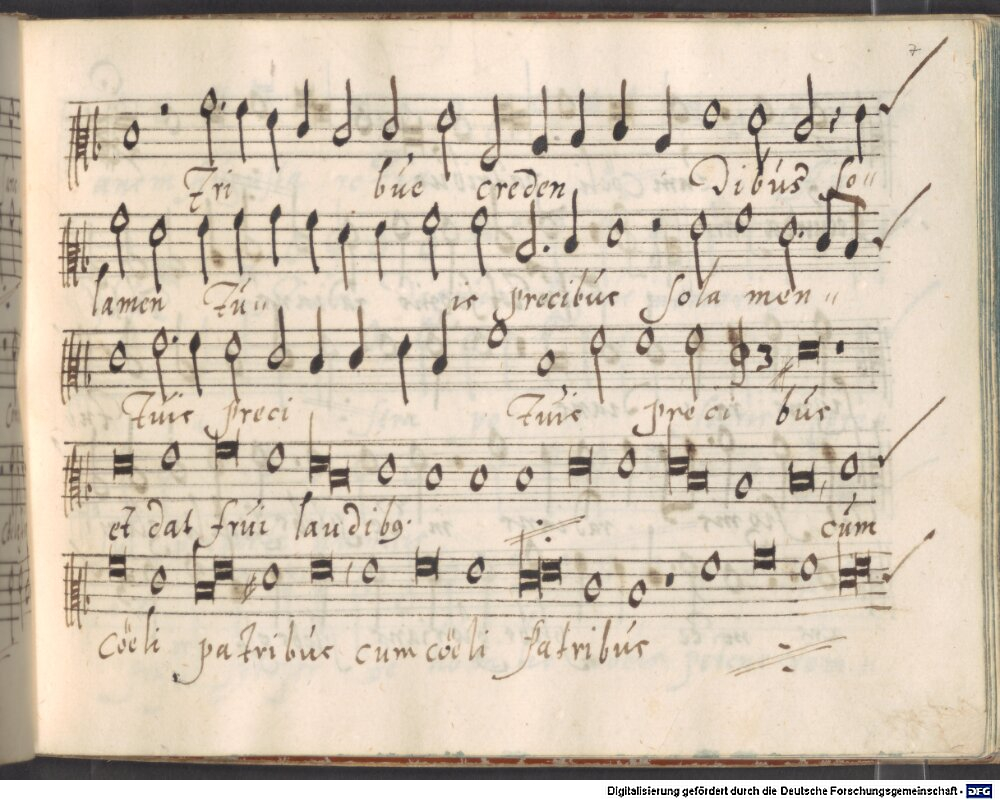 7
Tri bue creden Dibús so"
lamen Tu" is precibus sola men"
Túis preci Túis preci bús
et dat frúi laudibꝰ cúm
cöeli patribús cum cöeli patribús
Digitalisierung gefördert durch die Deutsche Forschungsgemeinschaft - DFG